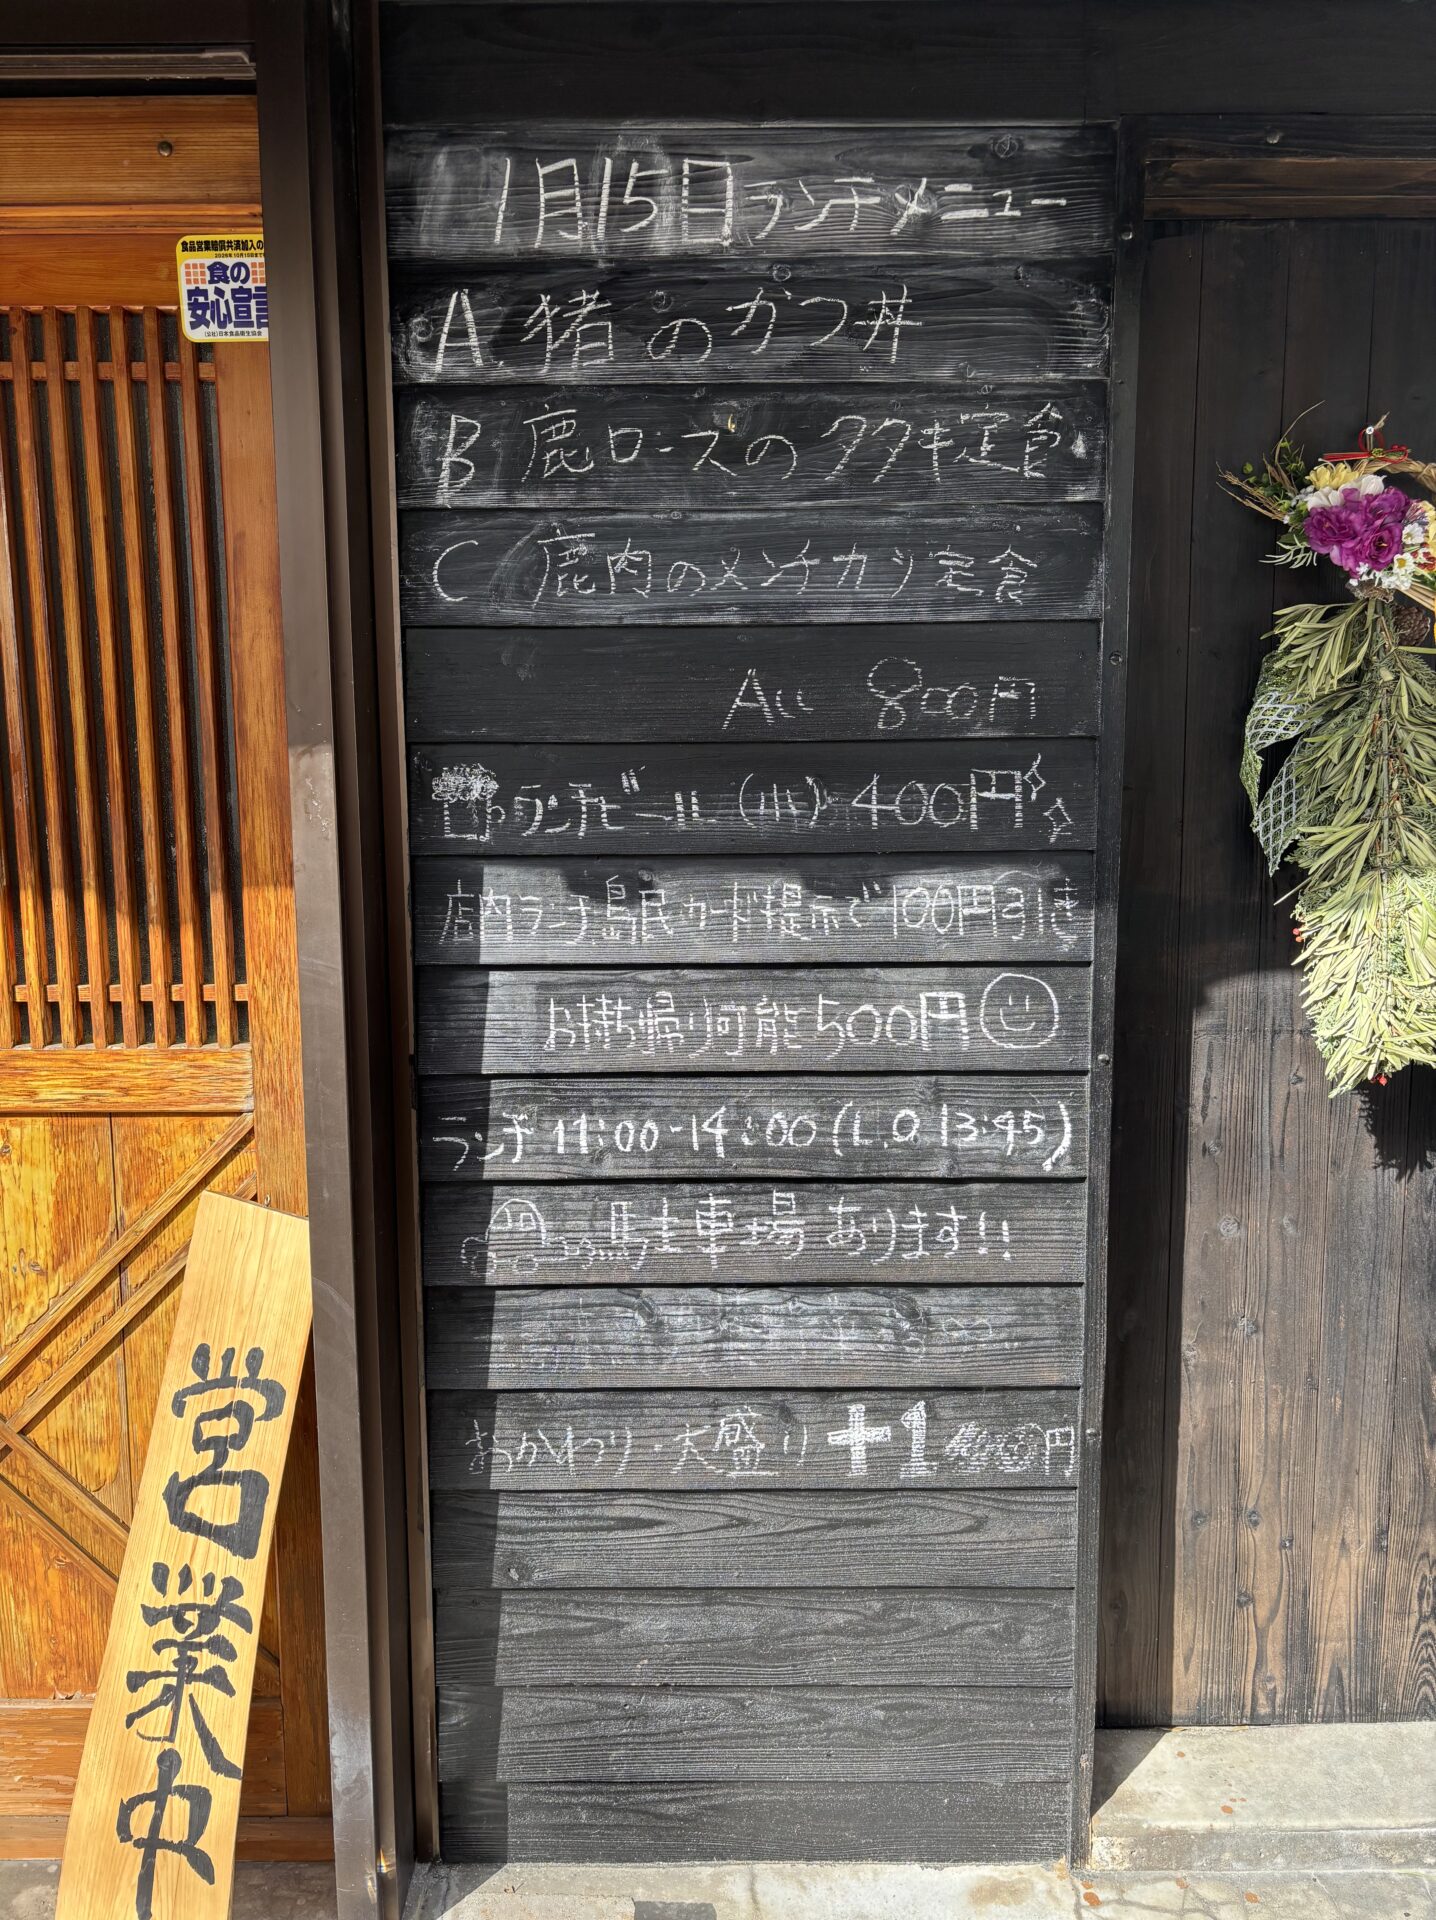 1月15日ランチメニュー
A.猪のかつ丼
B 鹿ロースのタタキ定食
C 鹿肉のメンチカツ定食
All 800円
ランチビール(小) 400円
店内ランチ島民カード提示で100円引き
お持ち帰り可能500円
ランチ 11:00-14:00(L.O 13:45)
駐車場あります!!
おかわり・大盛り+1 円
食品営業賠償共済加入の
2026年10月15日まで
食の
安心宣言
(公社)日本食品衛生協会
営業中